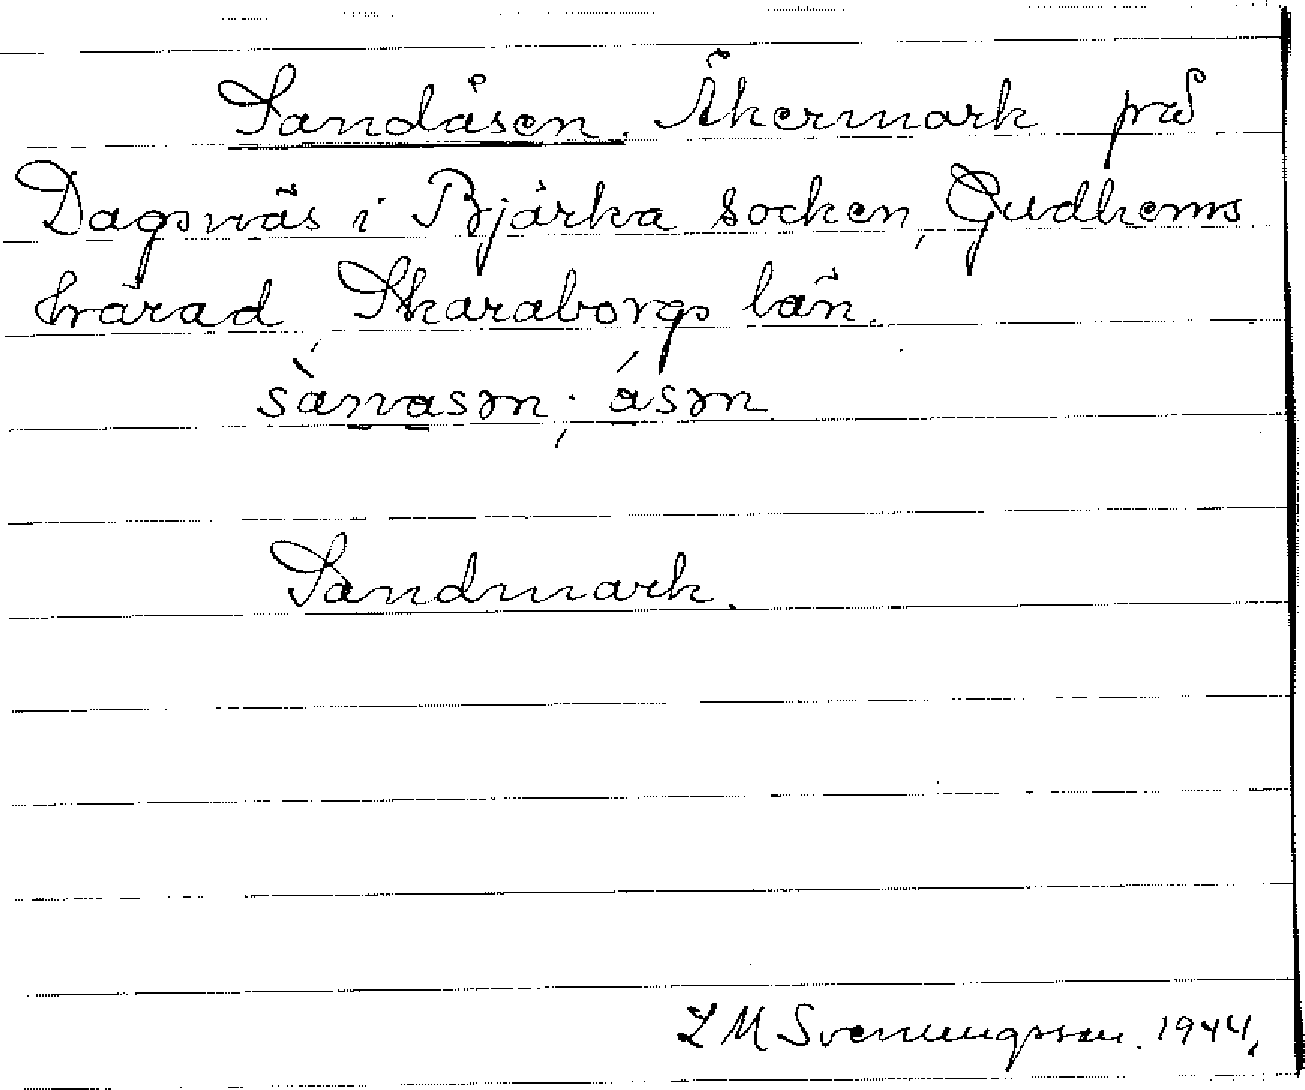 Sandåsen. Åkermark på
Dagsnäs i Bjärka socken, Gudhems
härad, Skaraborgs län.
sànnasən; ásən
Sandmark.
L M Svenungsson. 1944.